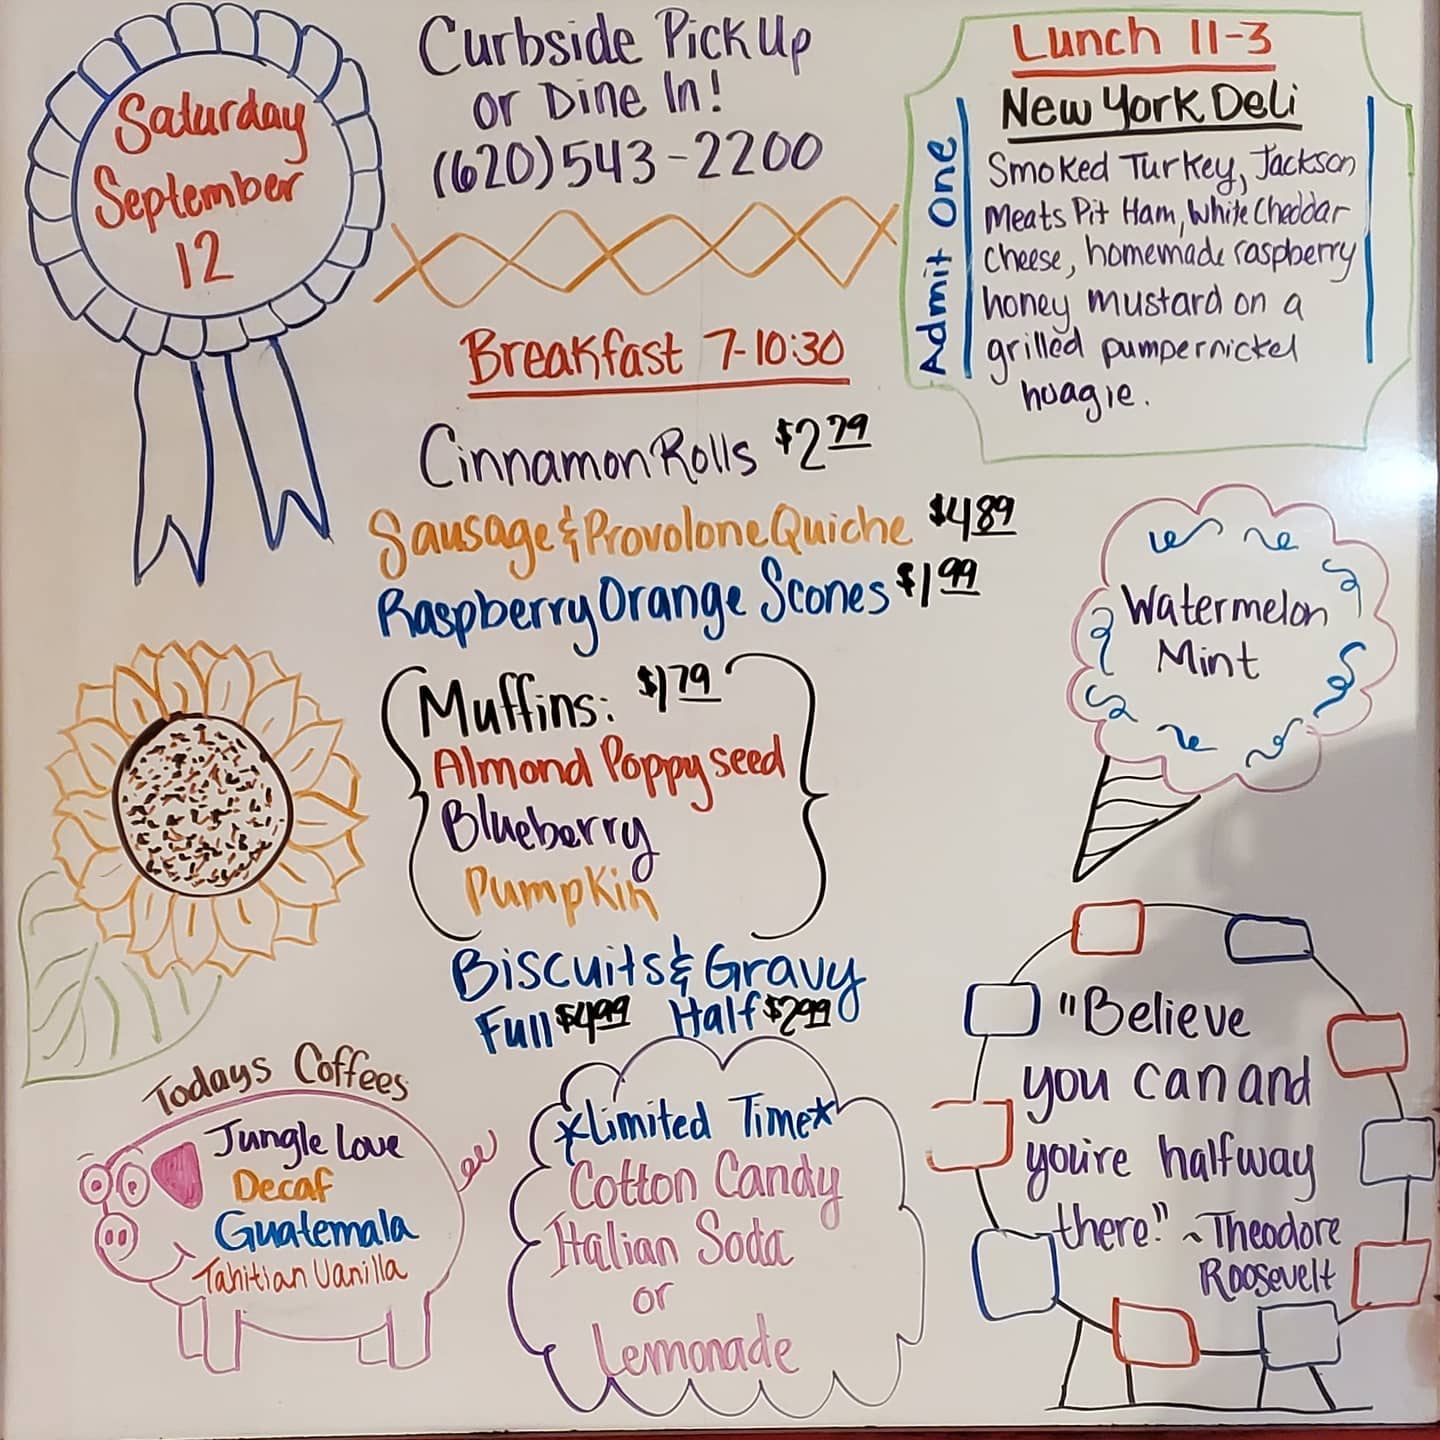 Saturday
September
12
Curbside Pick Up
or Dine In!
(620) 543-2200
Lunch 11-3
New York Deli
Admit One
Smoked Turkey, Jackson
Meats Pit Ham, White Cheddar
Cheese, homemade raspberry
honey mustard on a
grilled pumpernickel
hoagie.
Breakfast 7-10:30
Cinnamon Rolls $2.79
Sausage & Provolone Quiche $4.89
Raspberry Orange Scones $1.99
Muffins: $1.79
Almond Poppyseed
Blueberry
Pumpkin
Biscuits & Gravy
Full $4.99 Half $2.99
Watermelon
Mint
Todays Coffees
Jungle Love
Decaf
Guatemala
Tahitian Vanilla
*Limited Time*
Cotton Candy
Italian Soda
or
Lemonade
"Believe
you can and
you're halfway
there." ~Theodore
Roosevelt